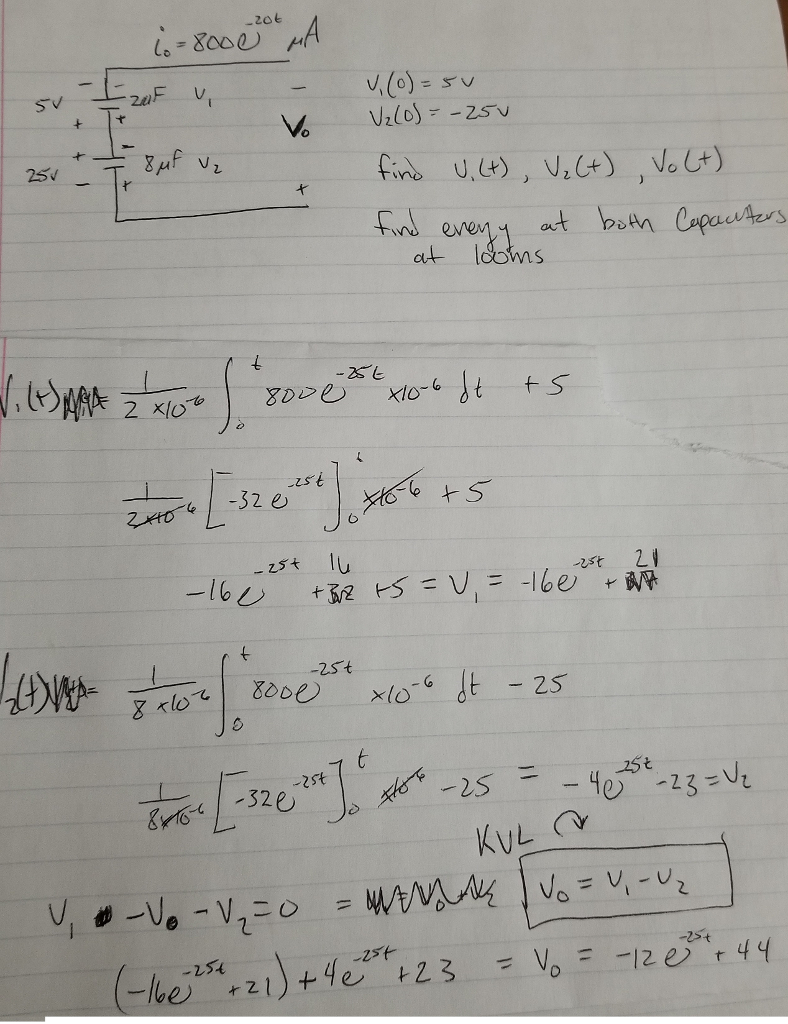 i₀ = 800e^-20t μA
5V - - 2μF V₁ -
+ + V₀
25V + - 8μF V₂
- + +
V₁(0) = 5V
V₂(0) = -25V
find V₁(t), V₂(t), V₀(t)
find energy at both Capacitors
at 100ms
V₁(t) = 1/(2 ×10^-6) ∫₀^t 800e^-25t ×10^-6 dt + 5
1/(2×10^-6) [-32e^-25t]₀^t ×10^-6 + 5
-16e^-25t + 16 + 5 = V₁ = -16e^-25t + 21
V₂(t) = 1/(8 ×10^-6) ∫₀^t 800e^-25t ×10^-6 dt - 25
1/(8×10^-6) [-32e^-25t]₀^t ×10^-6 - 25 = -4e^-25t - 23 = V₂
KVL
V₁ - V₀ - V₂ = 0 = V₀ = V₁ - V₂
(-16e^-25t + 21) + 4e^-25t + 23 = V₀ = -12e^-25t + 44